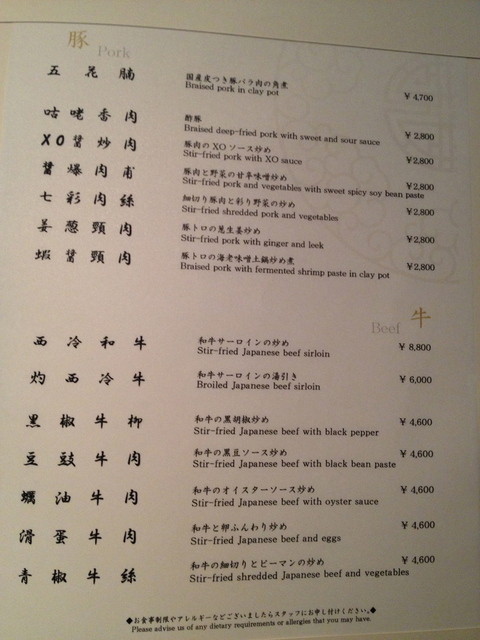 豚
Pork
五花腩
国産皮つき豚バラ肉の角煮
Braised pork in clay pot
￥4,700
咕咾香肉
酢豚
Braised deep-fried pork with sweet and sour sauce
￥2,800
XO醬炒肉
豚肉のXOソース炒め
Stir-fried pork with XO sauce
￥2,800
醬爆肉甫
豚肉と野菜の甘辛味噌炒め
Stir-fried pork and vegetables with sweet spicy soy bean paste
￥2,800
七彩肉絲
細切り豚肉と彩り野菜の炒め
Stir-fried shredded pork and vegetables
￥2,800
姜葱頸肉
豚トロの葱生姜炒め
Stir-fried pork with ginger and leek
￥2,800
蝦醬頸肉
豚トロの海老味噌土鍋炒め煮
Braised pork with fermented shrimp paste in clay pot
￥2,800
Beef 牛
西冷和牛
和牛サーロインの炒め
Stir-fried Japanese beef sirloin
￥8,800
灼西冷牛
和牛サーロインの湯引き
Broiled Japanese beef sirloin
￥6,000
黑椒牛柳
和牛の黒胡椒炒め
Stir-fried Japanese beef with black pepper
￥4,600
豆豉牛肉
和牛の黒豆ソース炒め
Stir-fried Japanese beef with black bean paste
￥4,600
蠣油牛肉
和牛のオイスターソース炒め
Stir-fried Japanese beef with oyster sauce
￥4,600
滑蛋牛肉
和牛と卵ふんわり炒め
Stir-fried Japanese beef and eggs
￥4,600
青椒牛絲
和牛の細切りとピーマンの炒め
Stir-fried shredded Japanese beef and vegetables
￥4,600
◆お食事制限やアレルギーなどございましたらスタッフにお申し付けください。◆
Please advise us of any dietary requirements or allergies that you may have.